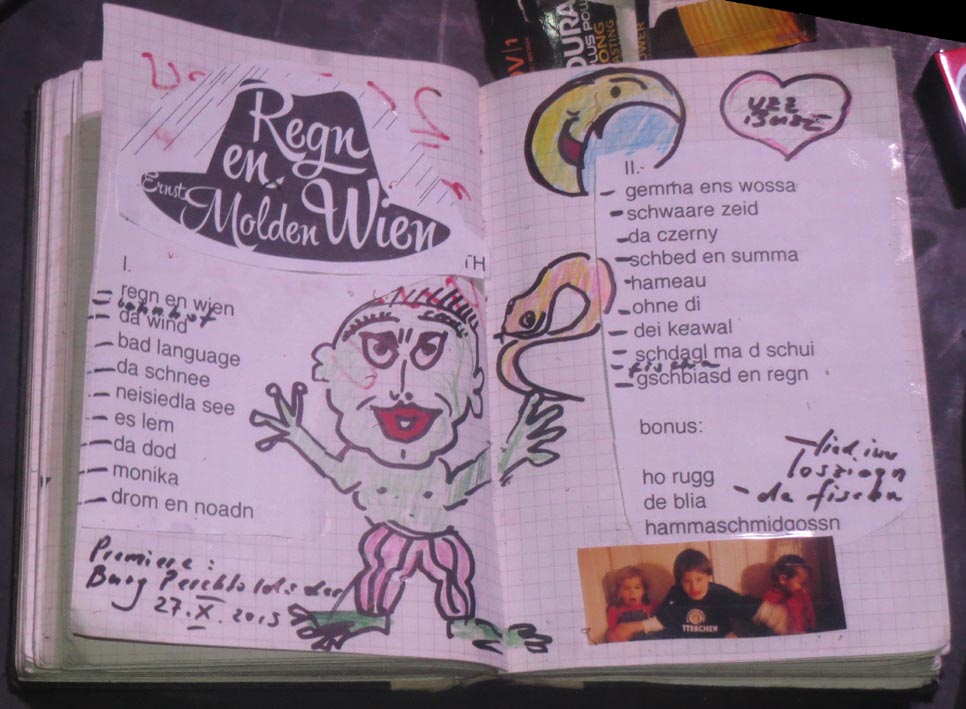 Regn
en
Ernst
Molden Wien
I.
regn en wien
bahnhof
da wind
bad language
da schnee
neisiedla see
es lem
da dod
monika
drom en noadn
Premiere:
Burg
27. X. 2015
II.
gemma ens wossa
schwaare zeid
da czerny
schbed en summa
hameau
ohne di
dei keawal
schdagl ma d schui
fischa
gschbiasd en regn
bonus:
ho rugg
de blia
hammaschmidgossn
lied
da
TTERCHEN
DURA
PLUS POW
ONG
ASTING
OWER